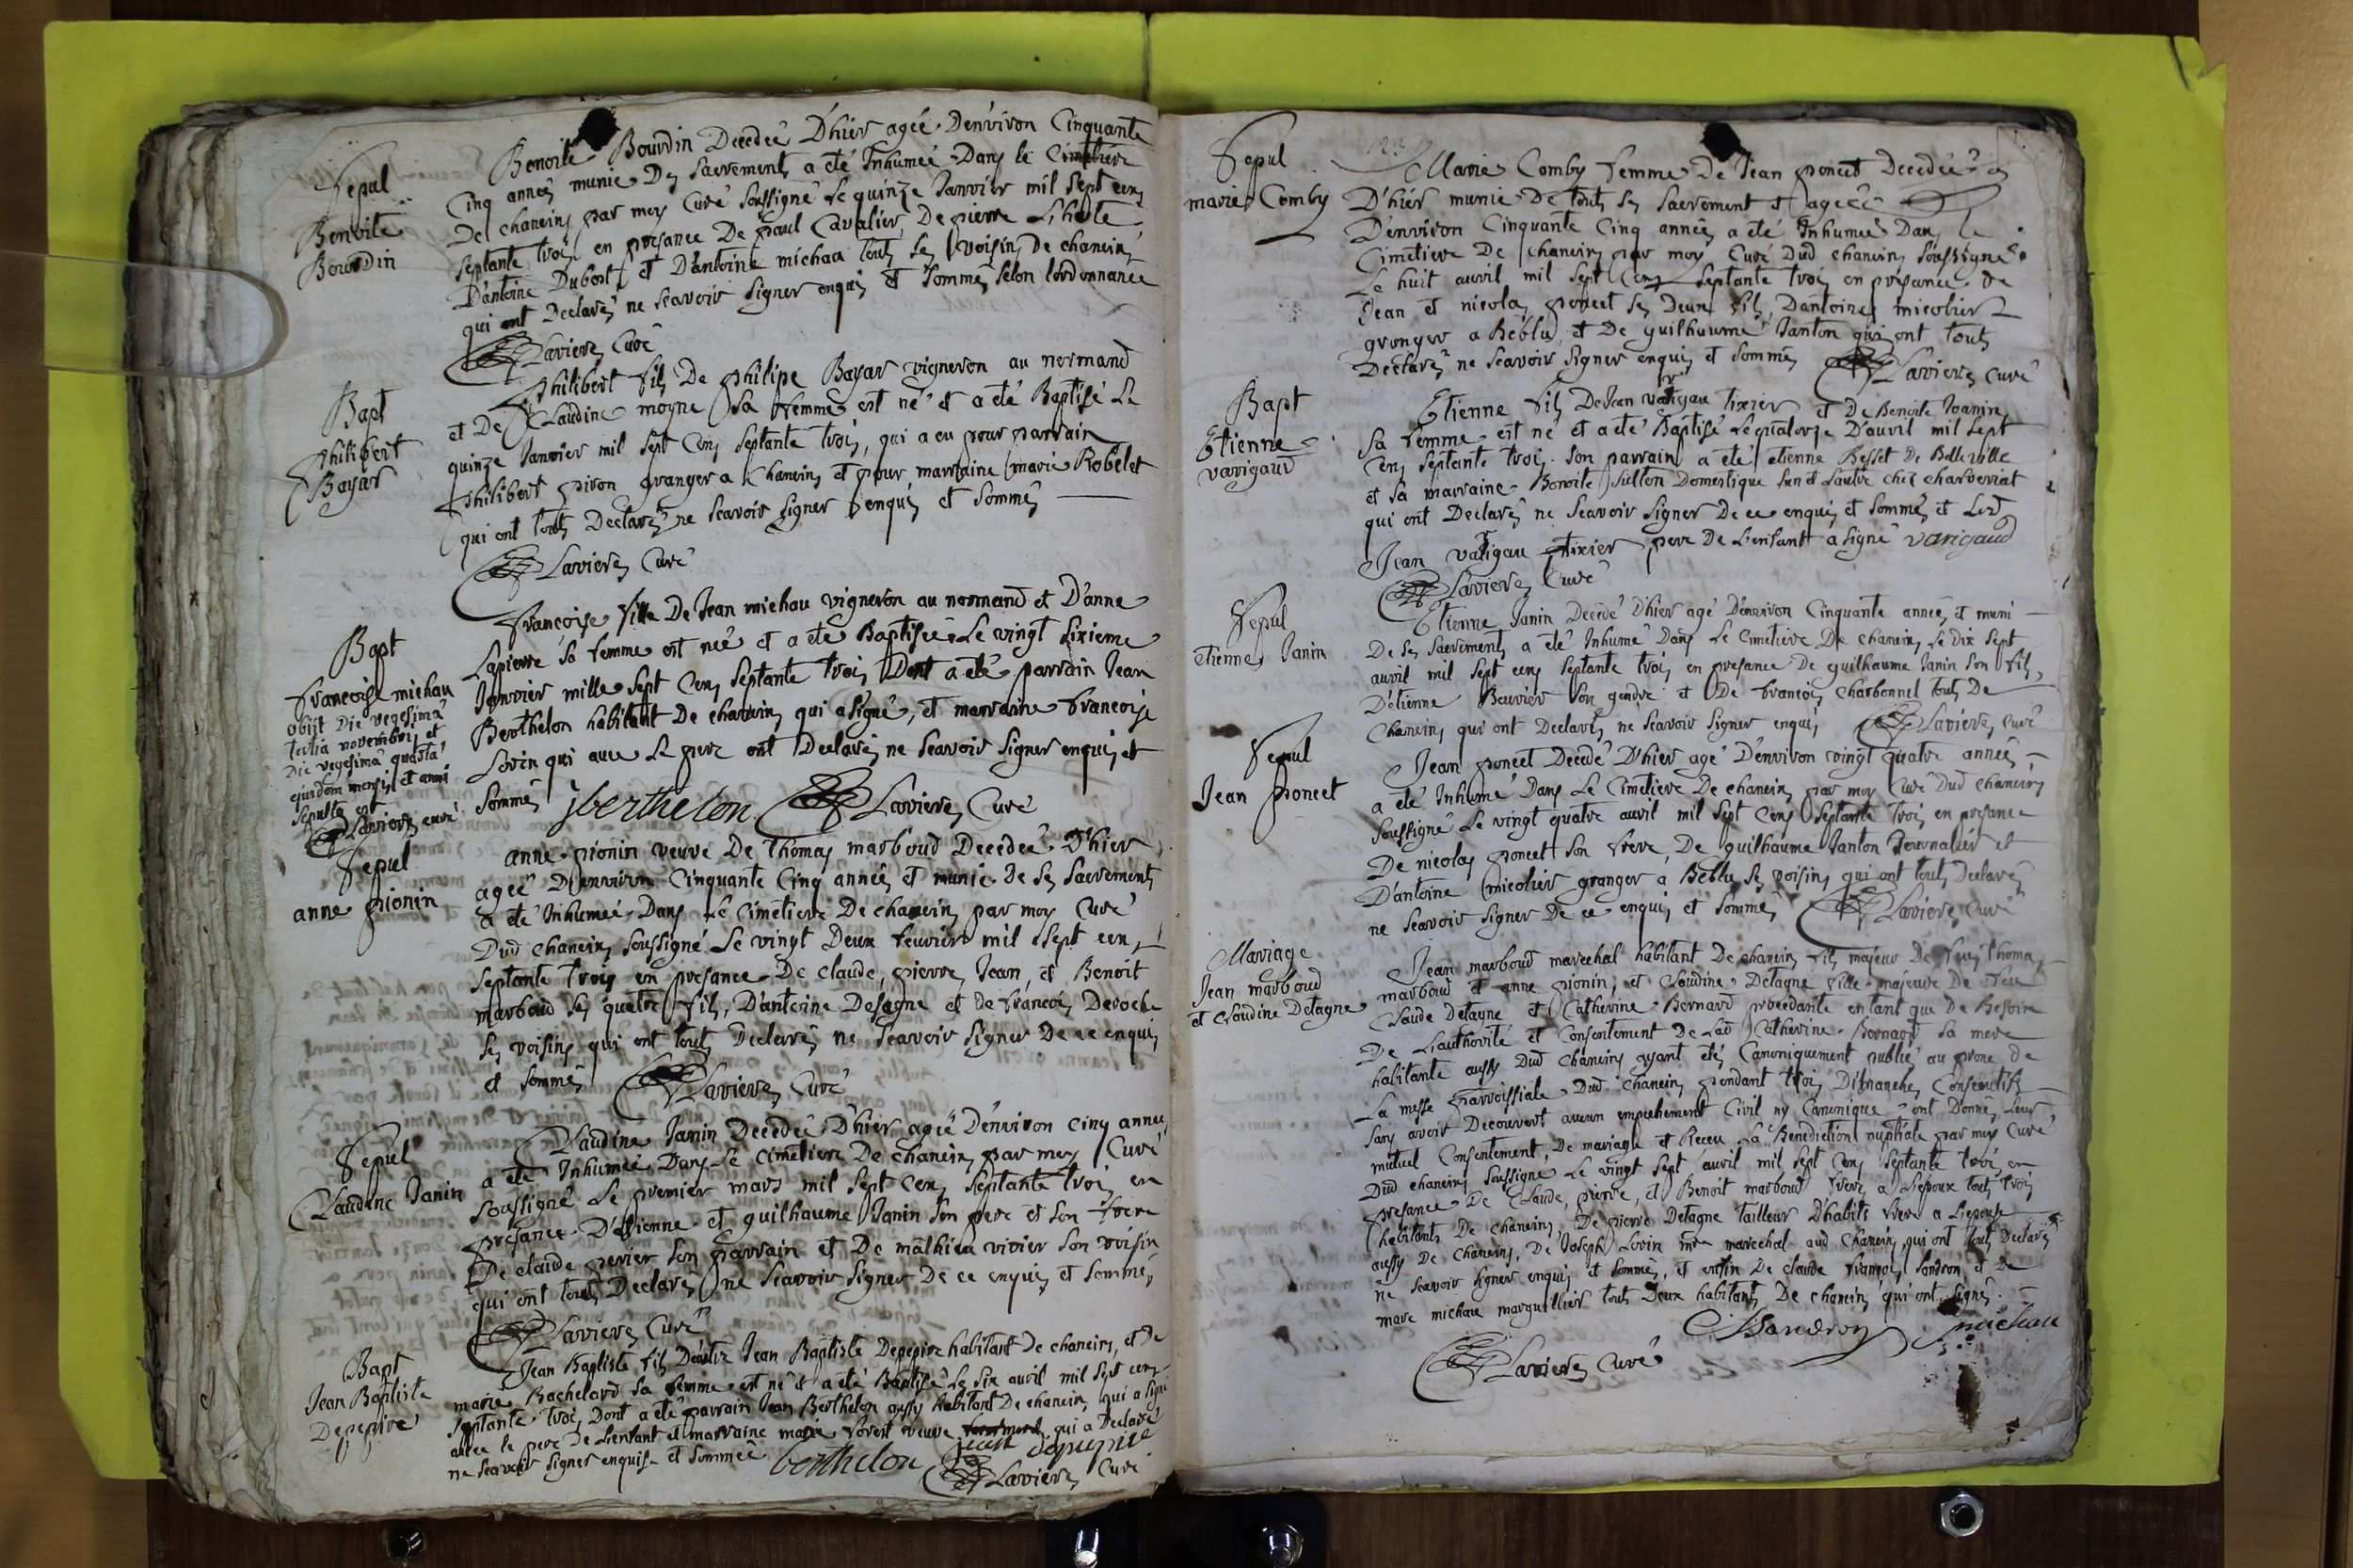 Sepul
Benoite
Bourdin
Benoite Bourdin Decedeé D'hier agée D'environ Cinquante
Cinq anneés munie Des sacrements a eté Inhumeé Dans le Cimetiere
De chaneins par moy Curé soussigné Le quinze Janvier mil sept cens
septante trois en presance De paul Cavalier, De pierre
D'antoine Dubost et D'antoine michau touts ses voisins De chaneins
qui ont Declarés ne scavoir signer enquis et sommés selon l'ordonnance
Laviere Curé
Bapt
Philibert
Bayar
Philibert fils De Philipe Bayar vigneron au normand
et De Claudine moyne sa femme est né et a eté Baptisé Le
quinze Janvier mil sept Cens septante trois, qui a eu pour parrain
Philibert piron granger a Chaneins et pour marraine marie Robelet
qui ont touts Declarés ne scavoir signer enquis et sommés
Laviere Curé
Bapt
francoise michau
obijt Die vegesima
tertia novembris et
Die vegesima quarta
ejusdem mensis et anni
sepulta est
Laviere curé
francoise fille De Jean michau vigneron au normand et D'anne
Lapierre sa femme est neé et a eté Baptiseé Le vingt sixieme
Janvier mille sept Cens septante trois Dont a eté parrain Jean
Berthelon habitant De chaneins qui a signé, et marraine francoise
Lovin qui avec Le pere ont Declarés ne scavoir signer enquis et
sommés jberthelon Laviere Curé
Sepul
anne pionin
anne pionin veuve De Thomas marboud Decedeé D'hier
ageé D'environ Cinquante Cinq anneés et munie de ses sacrements
a eté Inhumeé Dans Le Cimetiere De chaneins par moy Curé
Dud chaneins soussigné Le vingt Deux feuvrier mil sept cens
septante trois en presance De claude, pierre, Jean, et Benoit
marboud ses quatre fils, D'antoine Desagne et de francois Deroche
ses voisins qui ont touts Declarés ne scavoir signer De ce enquis
et sommés Laviere Curé
Sepul
Claudine Janin
Claudine Janin Decedeé D'hier ageé D'environ cinq anneés
a eté Inhumeé Dans Le cimetiere De chaneins par moy Curé
soussigné Le premier mars mil sept Cens septante trois en
presance D'estienne et guilhaume Janin son pere et son frere
De claude perier son parrain et De mathieu vivier son voisin
qui ont touts Declarés ne scavoir signer De ce enquis et sommés
Laviere Curé
Bapt
Jean Baptiste
Depepire
Jean Baptiste fils D'autre Jean Baptiste Depepire habitant De chaneins, et De
marie Bachelard sa femme est né et a eté Baptisé Le six avril mil sept cens
septante trois Dont a eté parrain Jean Berthelon aussy habitant De chaneins qui a signé
avec le pere De L'enfant et marraine marie veuve qui a Declaré
ne scavoir signer enquise et sommeé berthelon
Laviere Curé
Sepul
marie Comby
Marie Comby femme De Jean poncet Decedeé
D'hier munie De touts ses sacrement et ageé
D'environ Cinquante Cinq anneés a eté Inhumeé Dans le
Cimetiere De chaneins par moy Curé Dud chaneins soussigné
Le huit avril mil sept Cens septante trois en presance De
Jean et nicolas poncet ses Deux fils, D'antoine micolier
granger a Beblu, et De guilhaume Janton qui ont touts
Declarés ne scavoir signer enquis et sommés Laviere Curé
Bapt
Etienne
varigaud
Etienne fils De Jean varigau tixier et De Benoite Joanin
sa femme est né et a eté Baptisé Le quatorze D'avril mil sept
Cens septante trois. son parrain a eté etienne Besset De Belleville
et sa marraine Benoite sulton Domestique l'un et L'autre chez charverriat
qui ont Declarés ne scavoir signer De ce enquis et sommés et Led
Jean varigau tixier pere De L'enfant a signé varigaud
Laviere Curé
Sepul
etienne Janin
Etienne Janin Decedé D'hier agé D'environ Cinquante anneés et muni
De ses sacrements a eté Inhumé Dans Le Cimetiere De chaneins Le Dix sept
avril mil sept cens septante trois en presance De guilhaume Janin son fils,
D'etienne Beuvier son gendre et De francois charbonnel touts De
Chaneins qui ont Declarés ne scavoir signer enquis Laviere Curé
Sepul
Jean poncet
Jean poncet Decedé D'hier agé D'environ vingt quatre anneés
a eté Inhumé Dans Le Cimetiere De chaneins par moy Curé Dud chaneins
soussigné Le vingt quatre avril mil sept Cens septante trois en presance
De nicolas poncet son frere, De guilhaume Janton Journalier et
D'antoine micolier granger a Beblu ses voisins qui ont touts Declarés
ne scavoir signer De ce enquis et sommés Laviere Curé
Mariage
Jean marboud
et Claudine Detagne
Jean marboud marechal habitant De chaneins fils majeur De feu Thomas
marboud et anne pionin, et Claudine Detagne fille majeure De feu
Claude Detagne et Catherine Bernard procedante en tant que De Besoin
De L'authorité et Consentement De Lad Catherine Bernard sa mere
habitante aussy Dud Chaneins ayant etés Canoniquement publiés au prone de
La messe parroissiale Dud chaneins pendant trois Dimanches Consecutifs
sans avoir Decouvert aucun empechement Civil ny Canonique ont Donnés Leur
mutuel Consentement De mariage et Receu La Benediction nuptiale par moy Curé
Dud chaneins soussigné Le vingt sept avril mil sept Cens septante trois en
presance De Claude, pierre, et Benoit marboud freres a L'epoux touts trois
habitants De chaneins, De pierre Detagne tailleur D'habits frere a L'epouse
aussy De Chaneins, De Joseph Lovin mre marechal aud Chaneins, qui ont touts Declarés
ne scavoir signer enquis et sommés, et enfin De claude francois sandron et De
marc michau marguillier touts Deux habitants De chaneins qui ont signés
Sandron michau
Laviere Curé